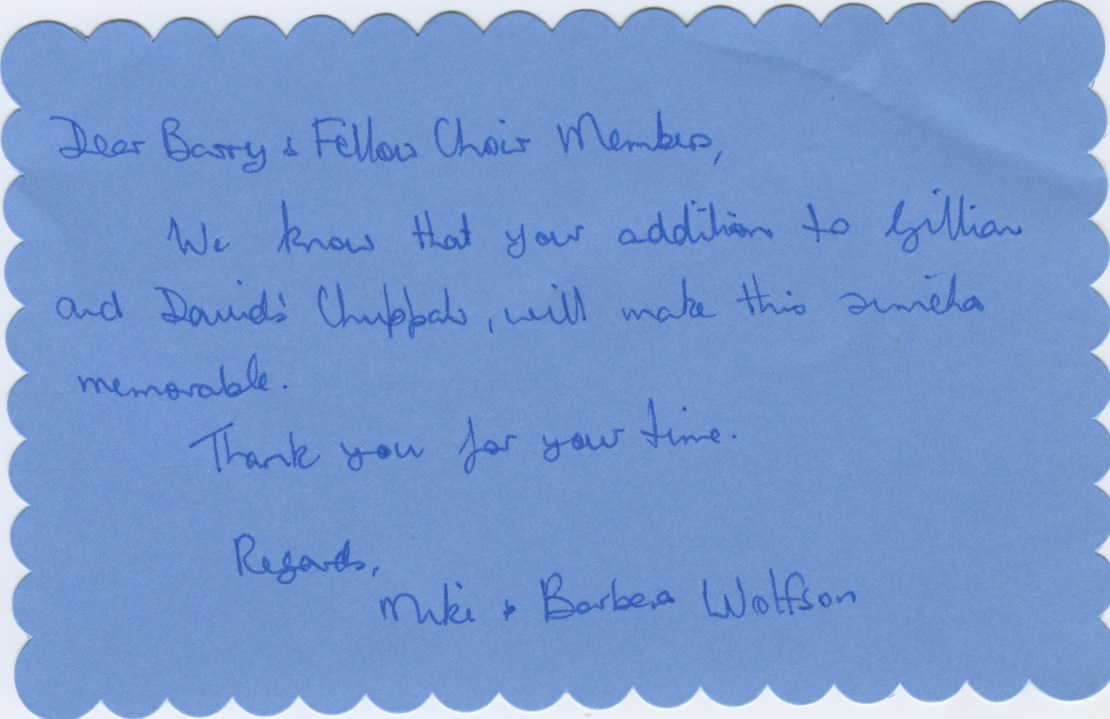 Dear Barry & Fellow Choir Members,
We know that your addition to Gillian
and David's Chuppah, will make this simcha
memorable.
Thank you for your time.
Regards,
Mike & Barbera Wolfson